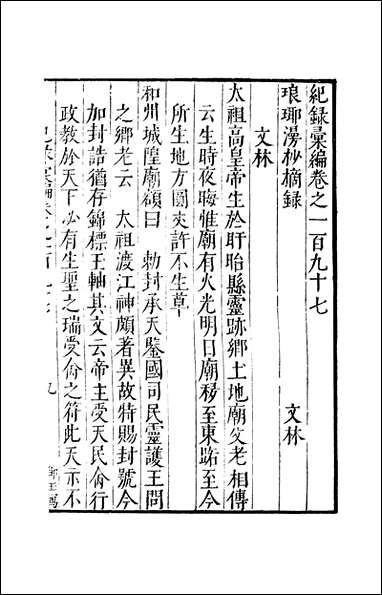 紀錄彙編卷之一百九十七
琅琊漫抄摘録
文林
文林
太祖高皇帝生於盱眙縣靈跡鄉土地廟父老相傳
云生時夜晦惟廟有火光明日廟移至東路至今
所生地方圓丈許不生草
和州城隍廟額曰　勑封承天鑒國司民靈護王問
之鄉老云　太祖渡江神頗著異故特賜封號今
加封誥猶存錦標玉軸其文云帝王受天民命行
政教於天下必有生聖之瑞受命之符此天示不